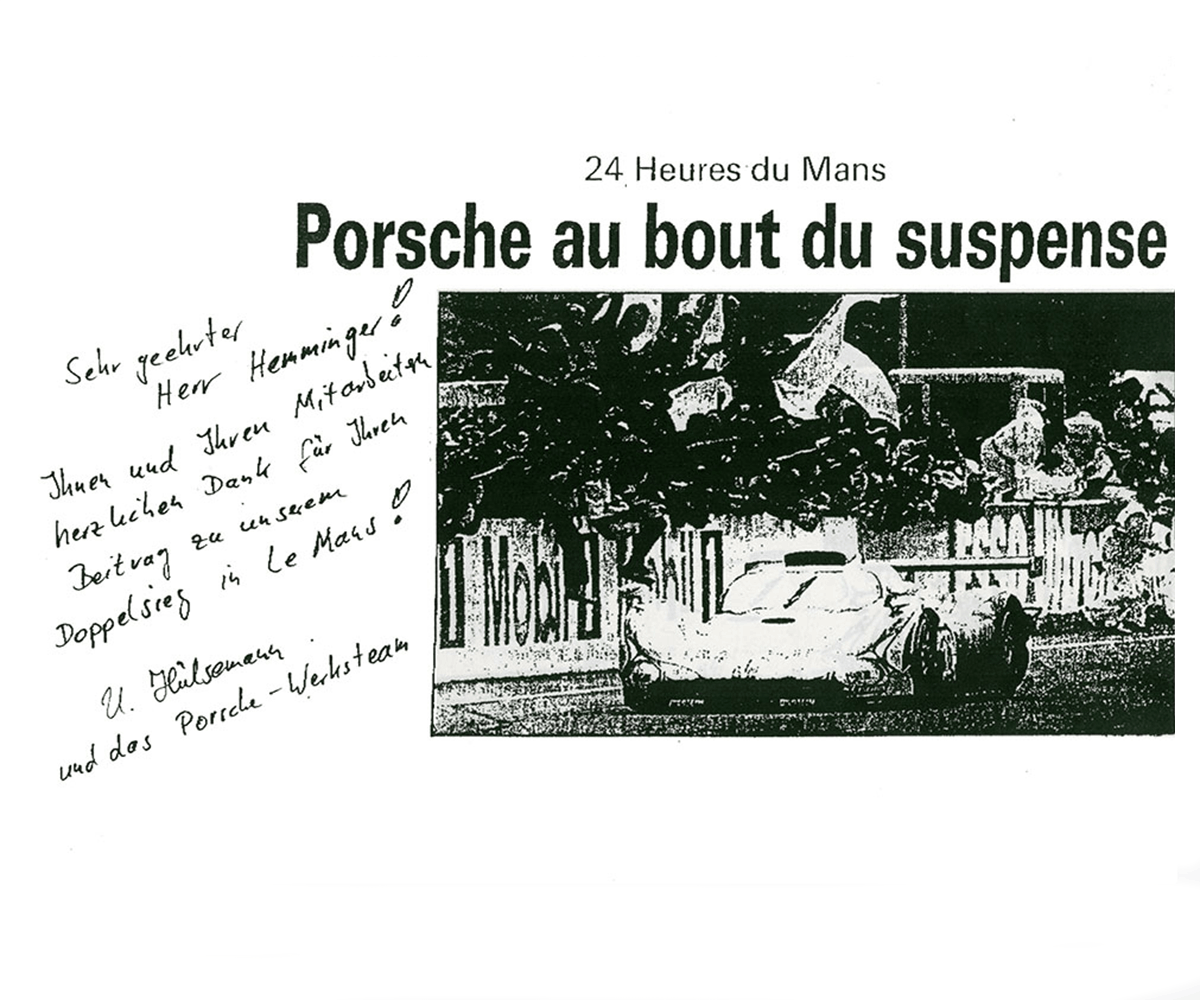 24 Heures du Mans
Porsche au bout du suspense
Sehr geehrter
Herr Hemminger!
Ihnen und Ihren Mitarbeitern
herzlichen Dank für Ihren
Beitrag zu unserem
Doppelsieg in Le Mans!
U. Hülsemann
und das Porsche-Werksteam
Mobil